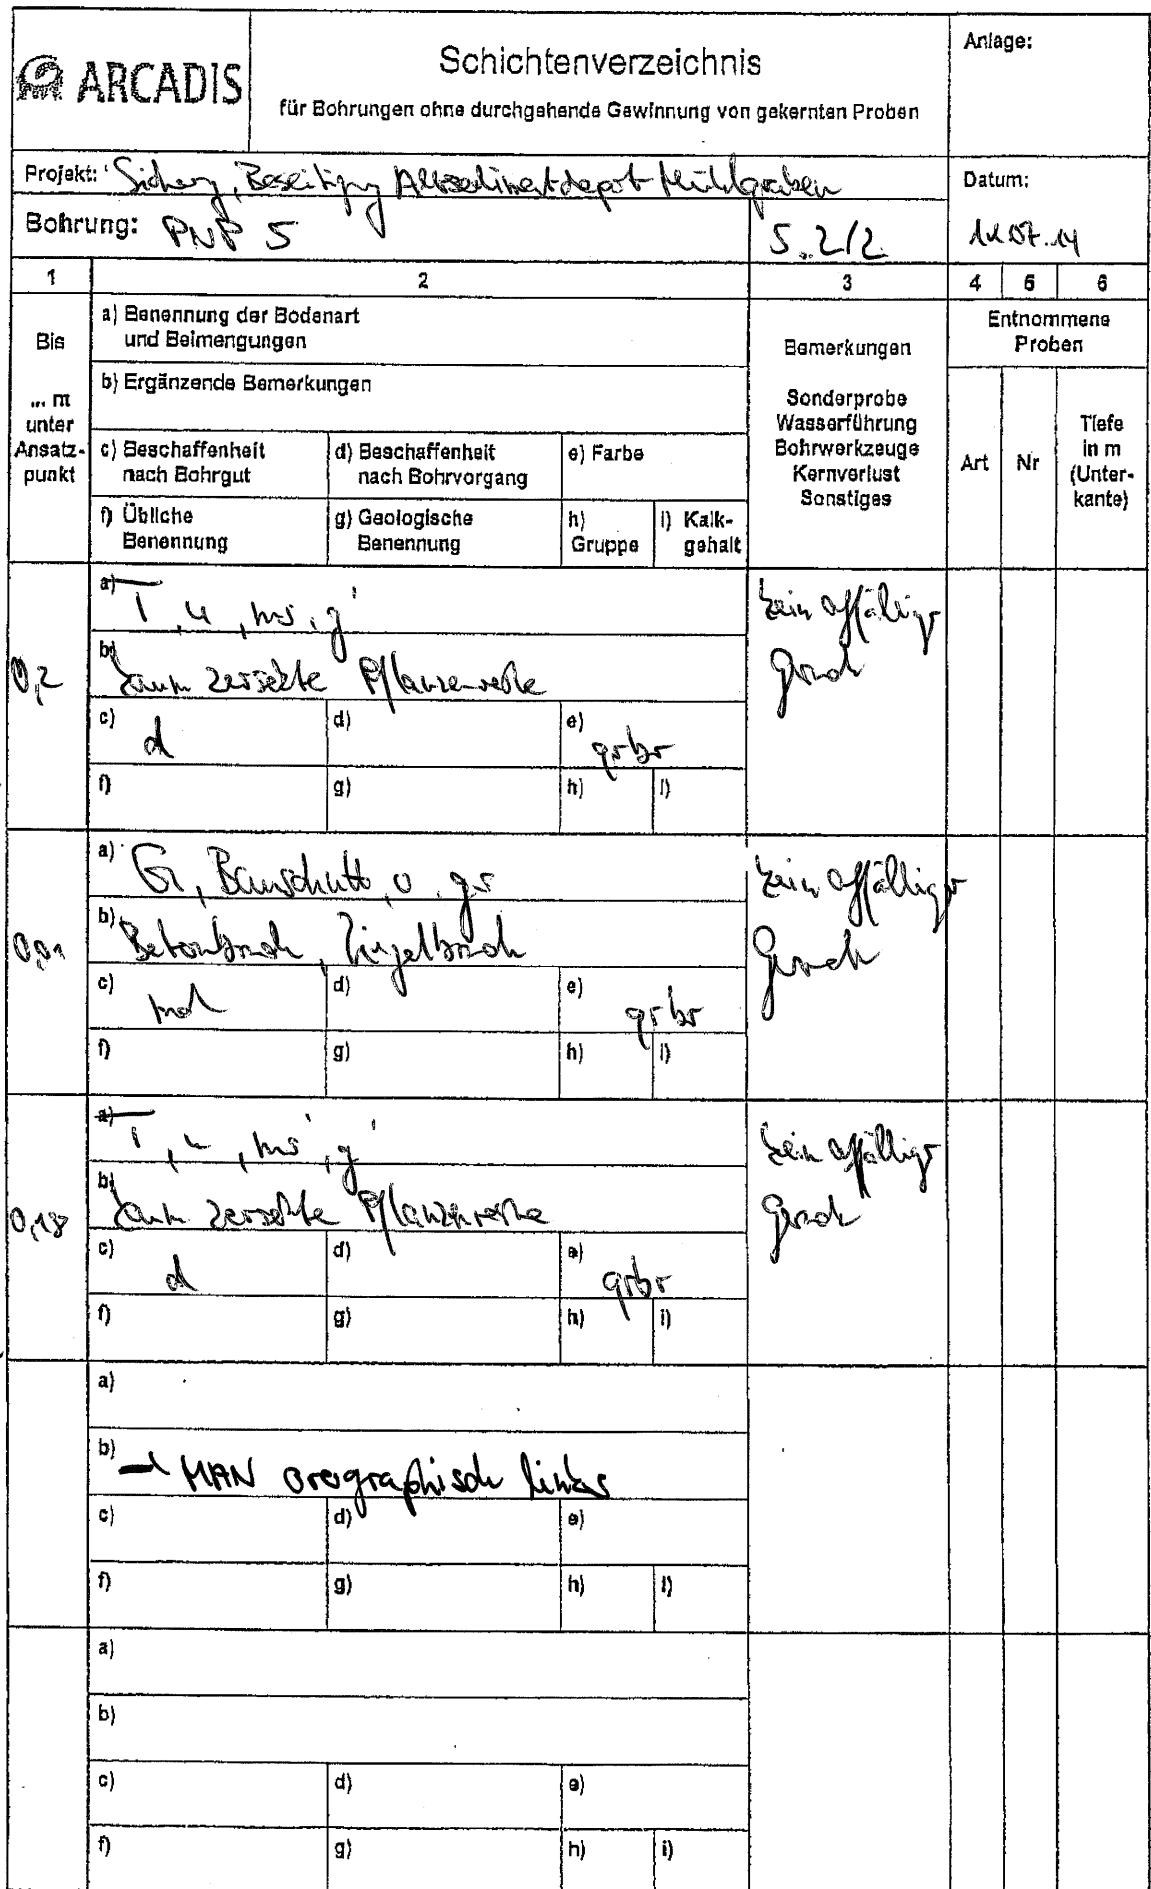 ARCADIS
Schichtenverzeichnis
für Bohrungen ohne durchgehende Gewinnung von gekernten Proben
Anlage:
Projekt: Sicherg, Beseitigung Altsedimentdepot Mühlgraben
Datum:
Bohrung: PNP 5
S. 2/2
07.14
1 2 3 4 5 6
Bis
... m
unter
Ansatz-
punkt
a) Benennung der Bodenart
und Beimengungen
b) Ergänzende Bemerkungen
c) Beschaffenheit
nach Bohrgut
d) Beschaffenheit
nach Bohrvorgang
e) Farbe
f) Übliche
Benennung
g) Geologische
Benennung
h)
Gruppe
i) Kalk-
gehalt
Bemerkungen
Sonderprobe
Wasserführung
Bohrwerkzeuge
Kernverlust
Sonstiges
Entnommene
Proben
Art
Nr
Tiefe
in m
(Unter-
kante)
0,2
a) T, u, ms, g'
b) kaum zersetzte Pflanzenreste
c) d
d)
e) grbr
f)
g)
h)
i)
kein auffälliger
Geruch
a) G, Bauschutt, gs
b) Betonbruch, Ziegelbruch
c)
d)
e) grbr
f)
g)
h)
i)
kein auffälliger
Geruch
0,18
a) T, u, ms', g'
b) kaum zersetzte Pflanzenreste
c) d
d)
e) grbr
f)
g)
h)
i)
kein auffälliger
Geruch
a)
b) → MAN orographisch links
c)
d)
e)
f)
g)
h)
i)
a)
b)
c)
d)
e)
f)
g)
h)
i)